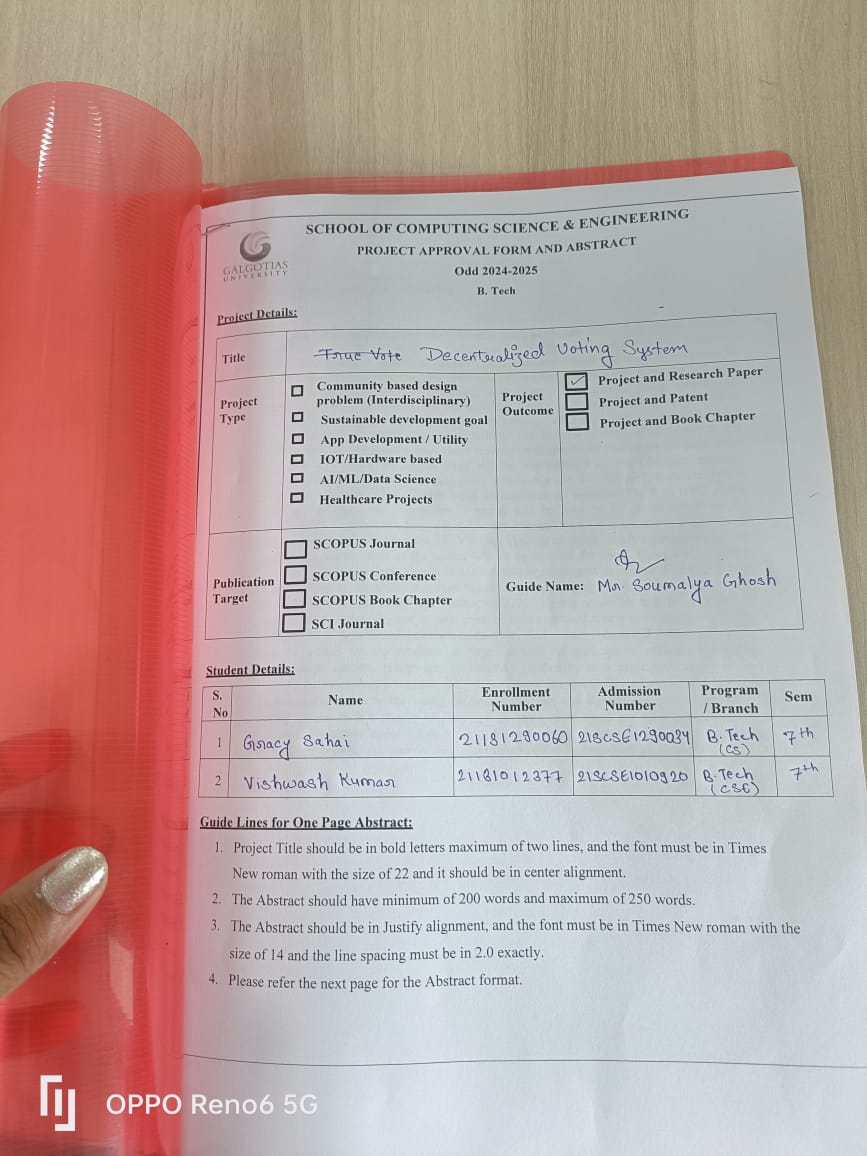 SCHOOL OF COMPUTING SCIENCE & ENGINEERING
GALGOTIAS
UNIVERSITY
PROJECT APPROVAL FORM AND ABSTRACT
Odd 2024-2025
B. Tech
Project Details:
Title
True Vote Decentralized Voting System
Project
Type
Community based design
problem (Interdisciplinary)
Sustainable development goal
App Development / Utility
IOT/Hardware based
AI/ML/Data Science
Healthcare Projects
Project
Outcome
Project and Research Paper
Project and Patent
Project and Book Chapter
Publication
Target
SCOPUS Journal
SCOPUS Conference
SCOPUS Book Chapter
SCI Journal
Guide Name: Mr. Soumalya Ghosh
Student Details:
S.
No
Name
Enrollment
Number
Admission
Number
Program
/ Branch
Sem
1 Gracy Sahai 21131290060 21SCSE1290034 B.Tech (CS) 7th
2 Vishwash Kumar 21131012377 21SCSE1010920 B.Tech (CSE) 7th
Guide Lines for One Page Abstract:
1. Project Title should be in bold letters maximum of two lines, and the font must be in Times
New roman with the size of 22 and it should be in center alignment.
2. The Abstract should have minimum of 200 words and maximum of 250 words.
3. The Abstract should be in Justify alignment, and the font must be in Times New roman with the
size of 14 and the line spacing must be in 2.0 exactly.
4. Please refer the next page for the Abstract format.
OPPO Reno6 5G